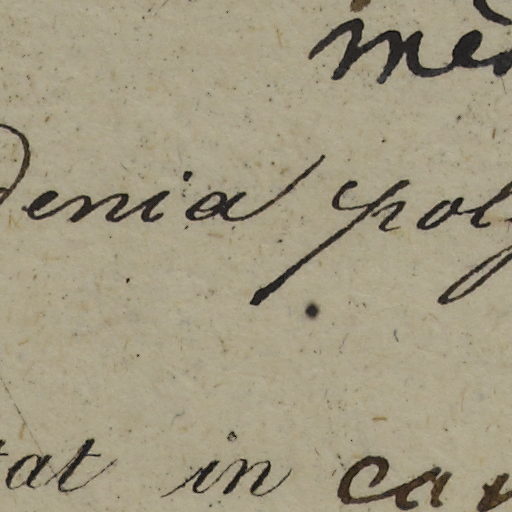 mê
denia pol
tat in ca